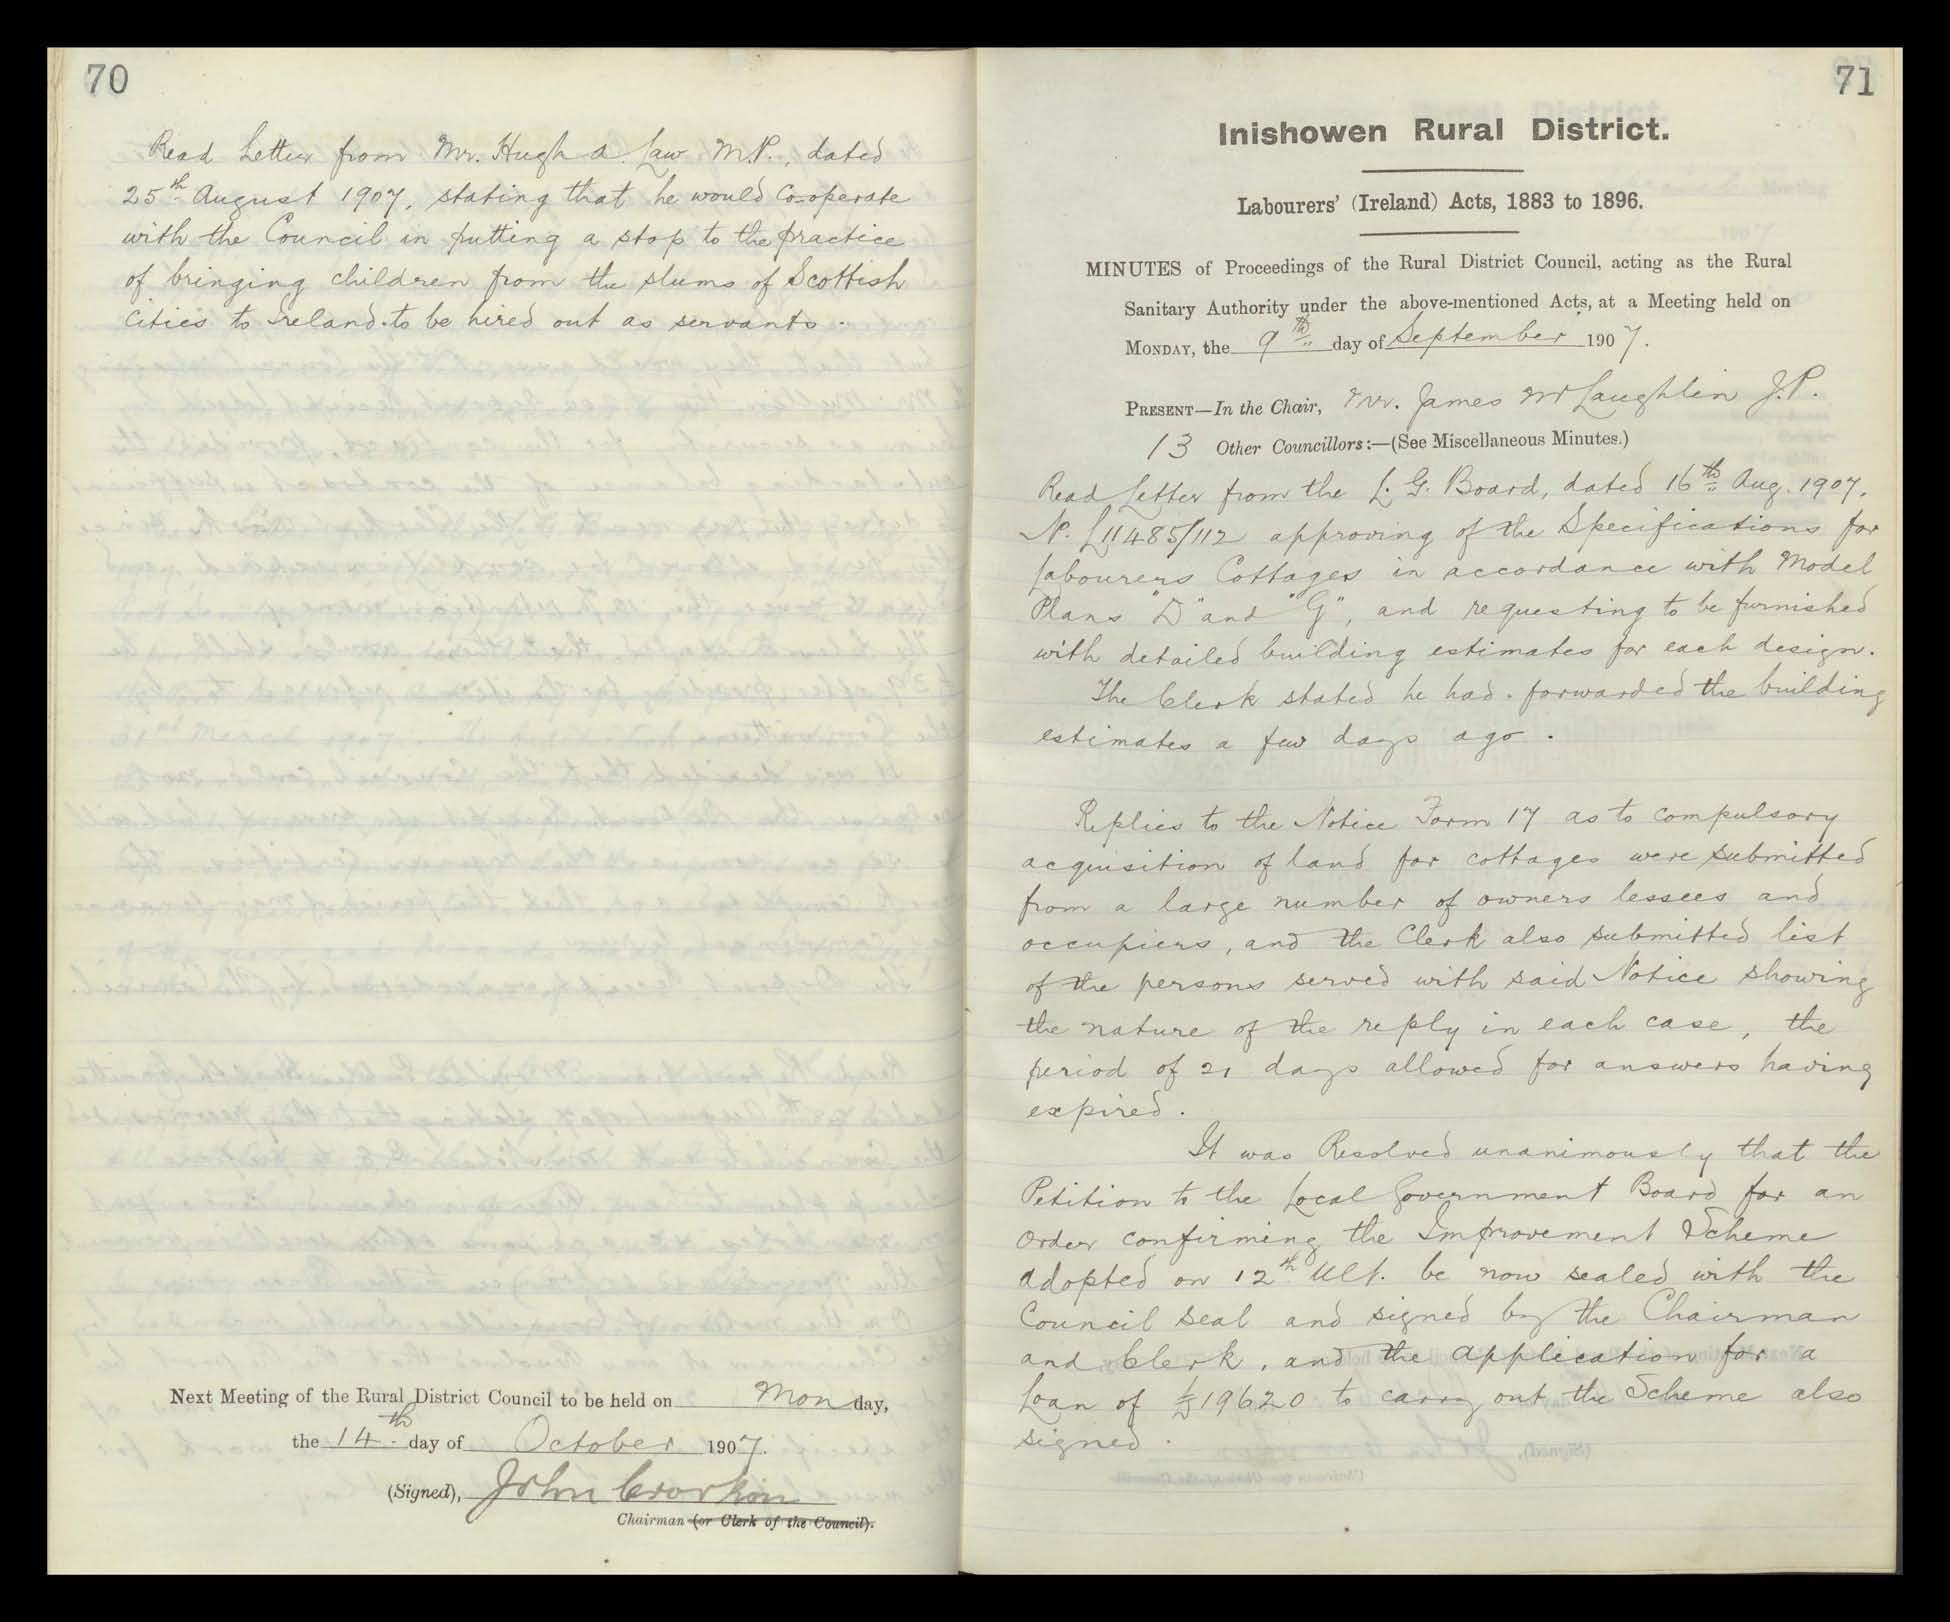 70
Read Letter from Mr. Hugh A. Law M.P., dated
25th August 1907, stating that he would co-operate
with the Council in putting a stop to the practice
of bringing children from the slums of Scottish
Cities to Ireland to be hired out as servants.
Next Meeting of the Rural District Council to be held on Monday,
the 14th day of October 1907.
(Signed), John
Chairman (or Clerk of the Council).
71
Inishowen Rural District.
Labourers' (Ireland) Acts, 1883 to 1896.
MINUTES of Proceedings of the Rural District Council, acting as the Rural
Sanitary Authority under the above-mentioned Acts, at a Meeting held on
MONDAY, the 9th day of September 1907.
PRESENT—In the Chair, Mr. James McLaughlin J.P.
13 Other Councillors:—(See Miscellaneous Minutes.)
Read Letter from the L. G. Board, dated 16th Aug. 1907,
No. L11485/112 approving of the Specifications for
Labourers Cottages in accordance with Model
Plans "D" and "G", and requesting to be furnished
with detailed building estimates for each design.
The Clerk stated he had forwarded the building
estimates a few days ago.
Replies to the Notice Form 17 as to compulsory
acquisition of land for cottages were submitted
from a large number of owners lessees and
occupiers, and the Clerk also submitted list
of the persons served with said Notice showing
the nature of the reply in each case, the
period of 21 days allowed for answers having
expired.
It was Resolved unanimously that the
Petition to the Local Government Board for an
order confirming the Improvement Scheme
adopted on 12th Ult. be now sealed with the
Council seal and signed by the Chairman
and Clerk, and the application for a
Loan of £19620 to carry out the Scheme also
signed.